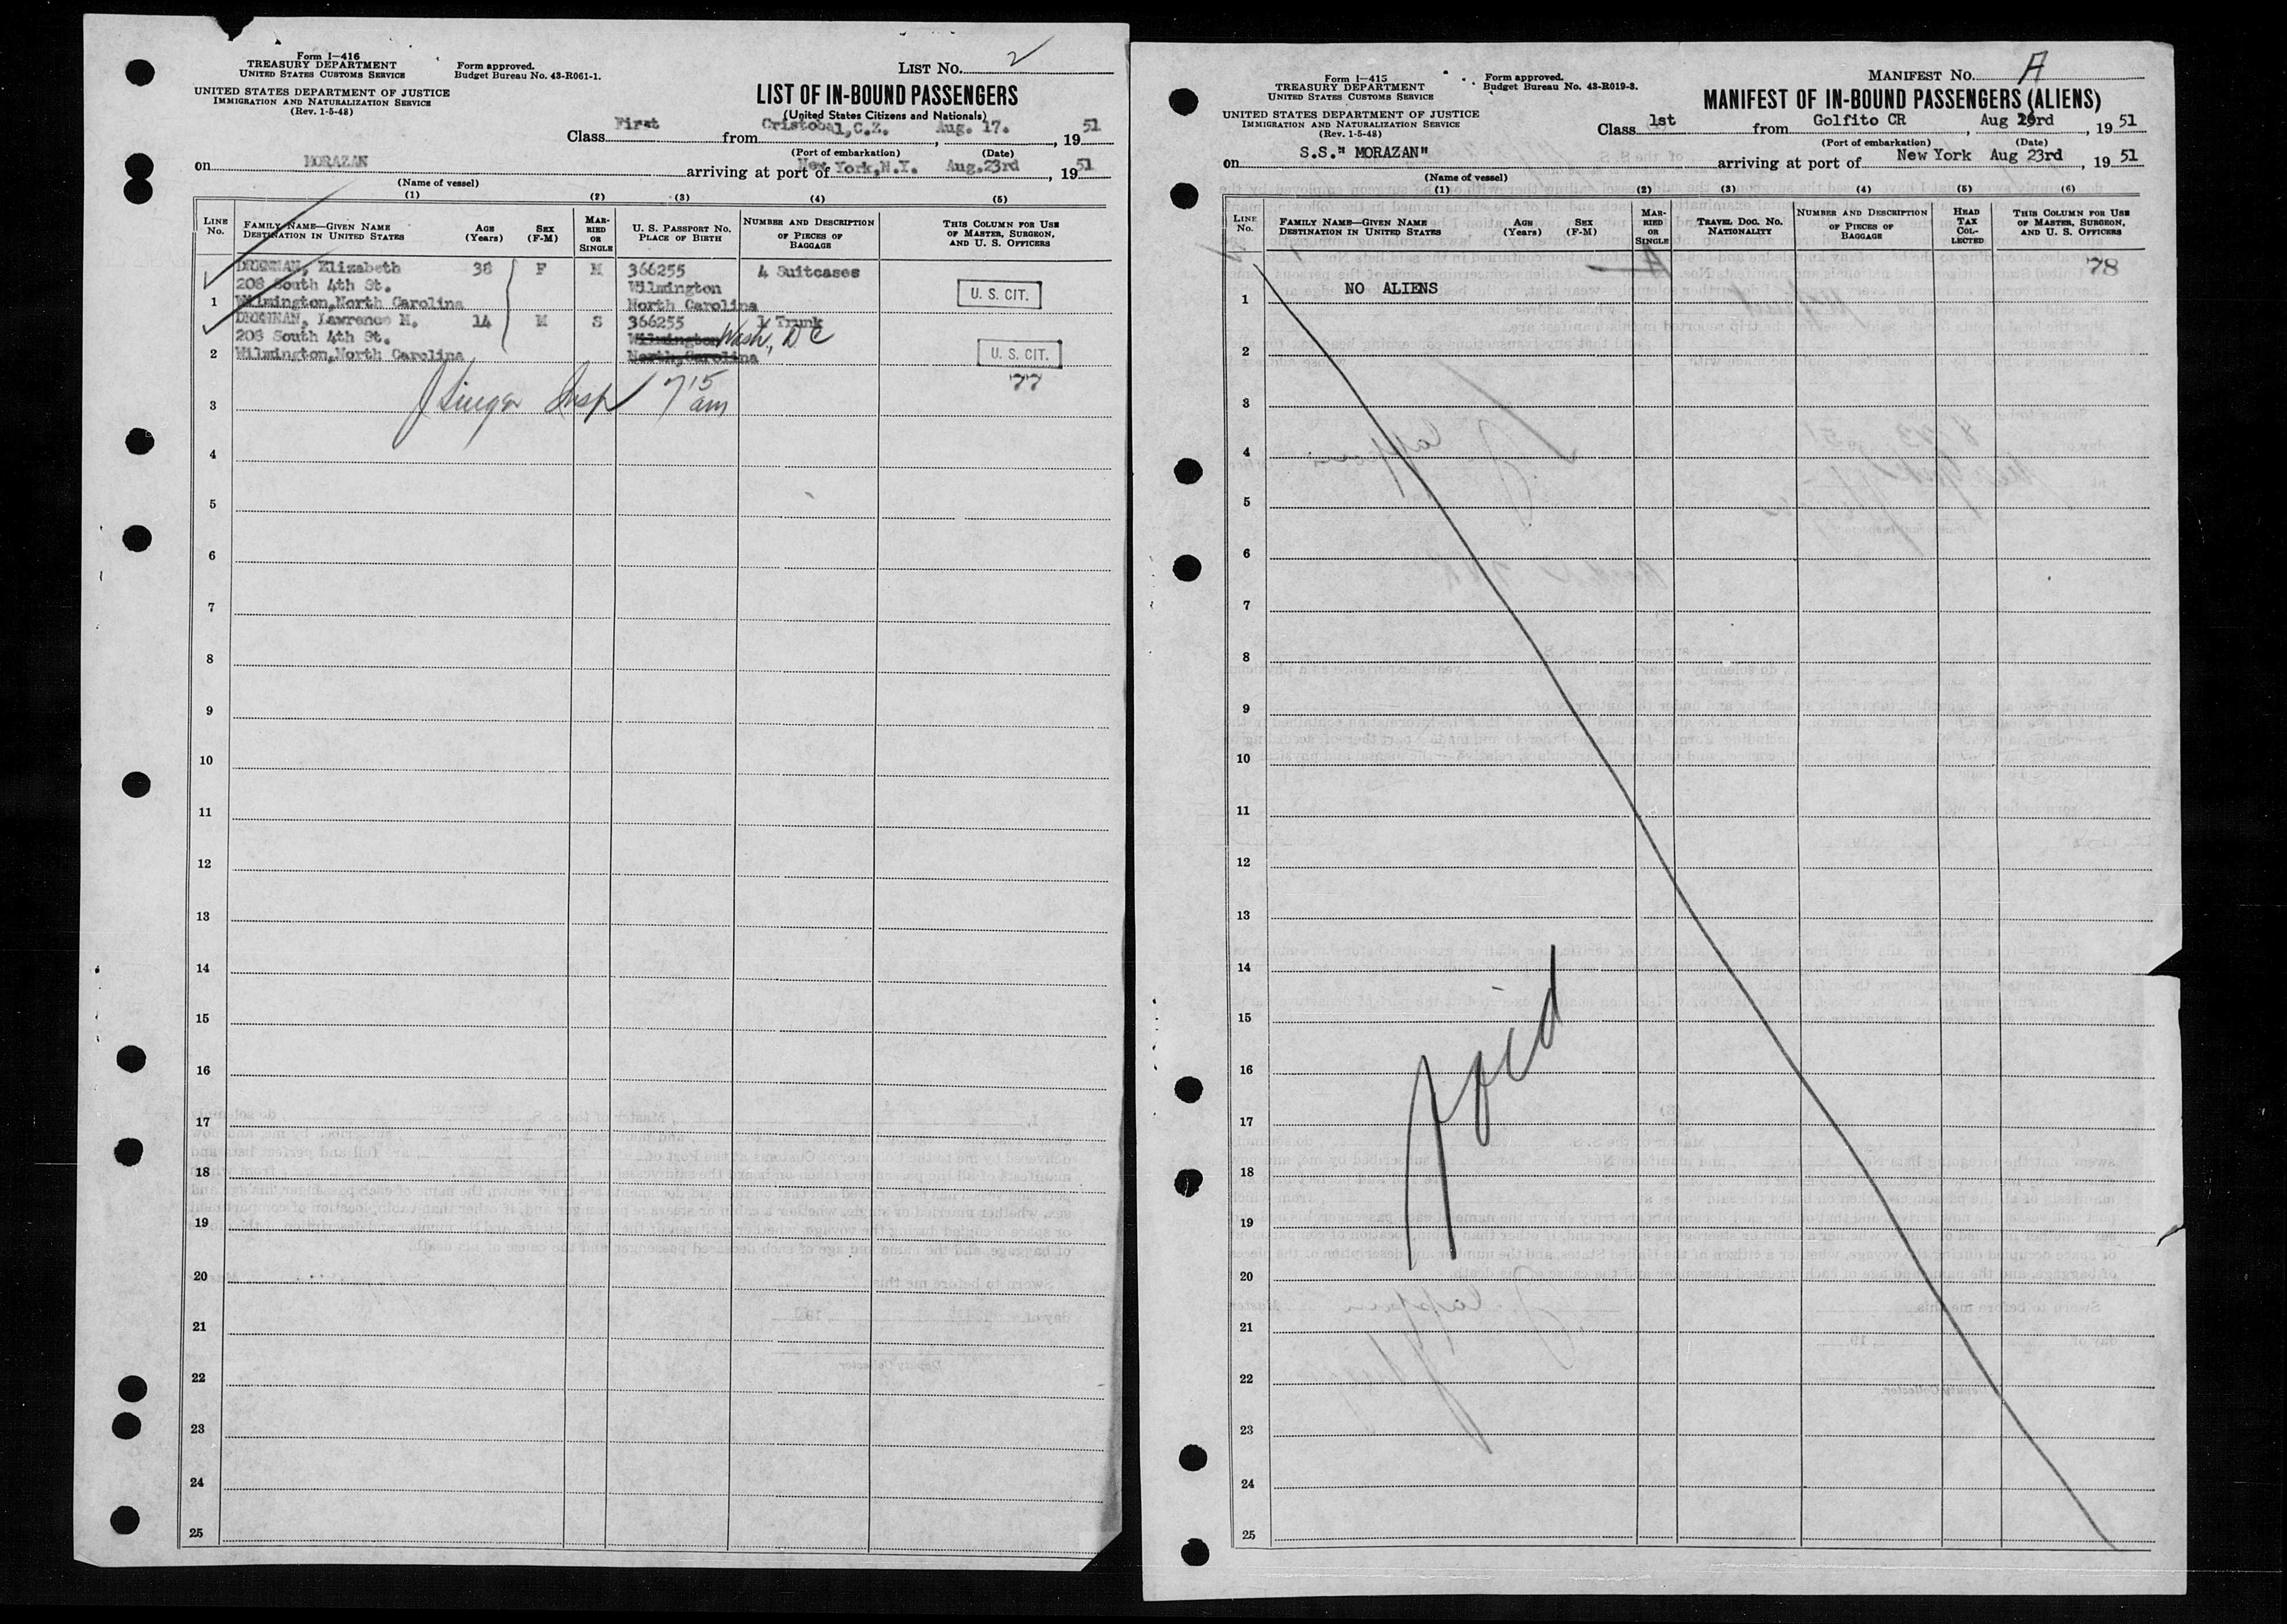 Form I-416
TREASURY DEPARTMENT
UNITED STATES CUSTOMS SERVICE
UNITED STATES DEPARTMENT OF JUSTICE
IMMIGRATION AND NATURALIZATION SERVICE
(Rev. 1-5-48)
Form approved.
Budget Bureau No. 43-R061-1.
LIST No. 2
LIST OF IN-BOUND PASSENGERS
(United States Citizens and Nationals)
Class First from Cristobal, C.Z. , Aug. 17. , 19 51
(Port of embarkation) (Date)
on MORAZAN arriving at port of New York, N.Y. Aug. 23rd , 19 51
(Name of vessel)
(1) (2) (3) (4) (5)
LINE No.
FAMILY NAME—GIVEN NAME
DESTINATION IN UNITED STATES
AGE (Years)
SEX (F-M)
MARRIED OR SINGLE
U. S. PASSPORT No.
PLACE OF BIRTH
NUMBER AND DESCRIPTION OF PIECES OF BAGGAGE
THIS COLUMN FOR USE OF MASTER, SURGEON, AND U. S. OFFICERS
Elizabeth 38 F M 366255 4 Suitcases
208 South 4th St. Wilmington
1 Wilmington, North Carolina North Carolina U. S. CIT.
Lawrence M. 14 M S 366255 1 Trunk
208 South 4th St. Wilmington Wash., D C
2 Wilmington, North Carolina North Carolina U. S. CIT.
77
Insp 7 15 am
3
4
5
6
7
8
9
10
11
12
13
14
15
16
17
18
19
20
21
22
23
24
25
Form I-415
TREASURY DEPARTMENT
UNITED STATES CUSTOMS SERVICE
UNITED STATES DEPARTMENT OF JUSTICE
IMMIGRATION AND NATURALIZATION SERVICE
(Rev. 1-5-48)
Form approved.
Budget Bureau No. 43-R019-3.
MANIFEST No. A
MANIFEST OF IN-BOUND PASSENGERS (ALIENS)
Class 1st from Golfito CR , Aug , 19 51
(Port of embarkation) (Date)
on S.S." MORAZAN" arriving at port of New York Aug 23rd , 19 51
(Name of vessel)
(1) (2) (3) (4) (5) (6)
LINE No.
FAMILY NAME—GIVEN NAME
DESTINATION IN UNITED STATES
AGE (Years)
SEX (F-M)
MARRIED OR SINGLE
TRAVEL DOC. No.
NATIONALITY
NUMBER AND DESCRIPTION OF PIECES OF BAGGAGE
HEAD TAX COLLECTED
THIS COLUMN FOR USE OF MASTER, SURGEON, AND U. S. OFFICERS
78
1 NO ALIENS
2
3
4
5
6
7
8
9
10
11
12
13
14
15
16
Void
17
18
19
20
21
22
23
24
25